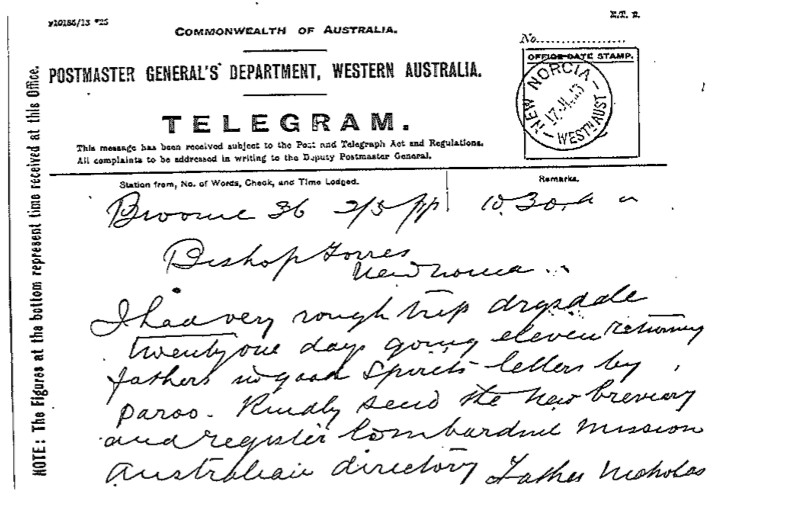 y10186/13 *25
E.T. 2.
COMMONWEALTH OF AUSTRALIA.
No.
POSTMASTER GENERAL'S DEPARTMENT, WESTERN AUSTRALIA.
OFFICE DATE STAMP.
NEW NORCIA
WESTN AUST
TELEGRAM.
This message has been received subject to the Post and Telegraph Act and Regulations.
All complaints to be addressed in writing to the Deputy Postmaster General.
Station from, No. of Words, Check, and Time Lodged.
Remarks.
Broome 36 2/5 pp 10.30 a m
Bishop Torres
New Norcia
I had very rough trip drysdale
twenty one days going eleven returning
fathers in good spirits letters by
paroo. Kindly send the new breviary
and register lombardini mission
Australian directory Father Nicholas
NOTE: The Figures at the bottom represent time received at this Office.